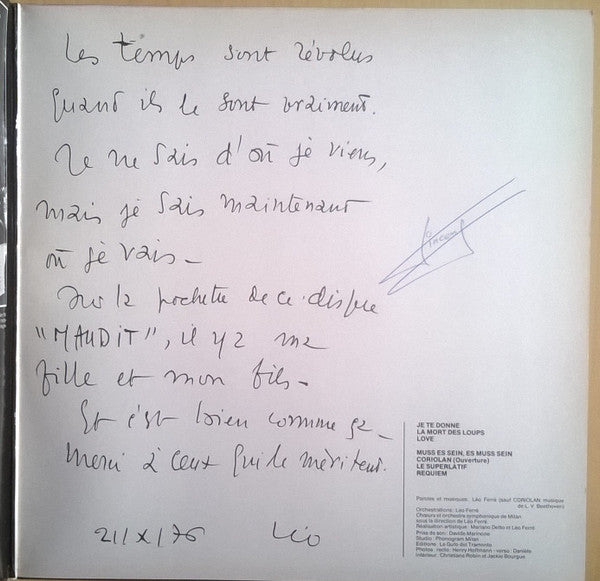 Les temps sont révolus
quand ils le sont vraiment.
Je ne sais d'où je viens,
mais je sais maintenant
où je vais –
Sur la pochette de ce disque
"MAUDIT", il y a ma
fille et mon fils –
Et c'est bien comme ça –
Merci à ceux qui le méritent.
21/X/76 Léo
JE TE DONNE
LA MORT DES LOUPS
LOVE
MUSS ES SEIN, ES MUSS SEIN
CORIOLAN (Ouverture)
LE SUPERLATIF
REQUIEM
Paroles et musiques: Léo Ferré (sauf CORIOLAN: musique
de L. V. Beethoven)
Orchestrations: Léo Ferré
Chœurs et orchestre symphonique de Milan
sous la direction de Léo Ferré.
Réalisation artistique: Mariano Detto et Léo Ferré
Prise de son: Davide Marinone
Studio: Phonogram Milan
Editions: Le Gufo del Tramonto
Photos: recto: Henry Hoffmann - verso: Danièle
intérieur: Christiane Robin et Jackie Bourgue